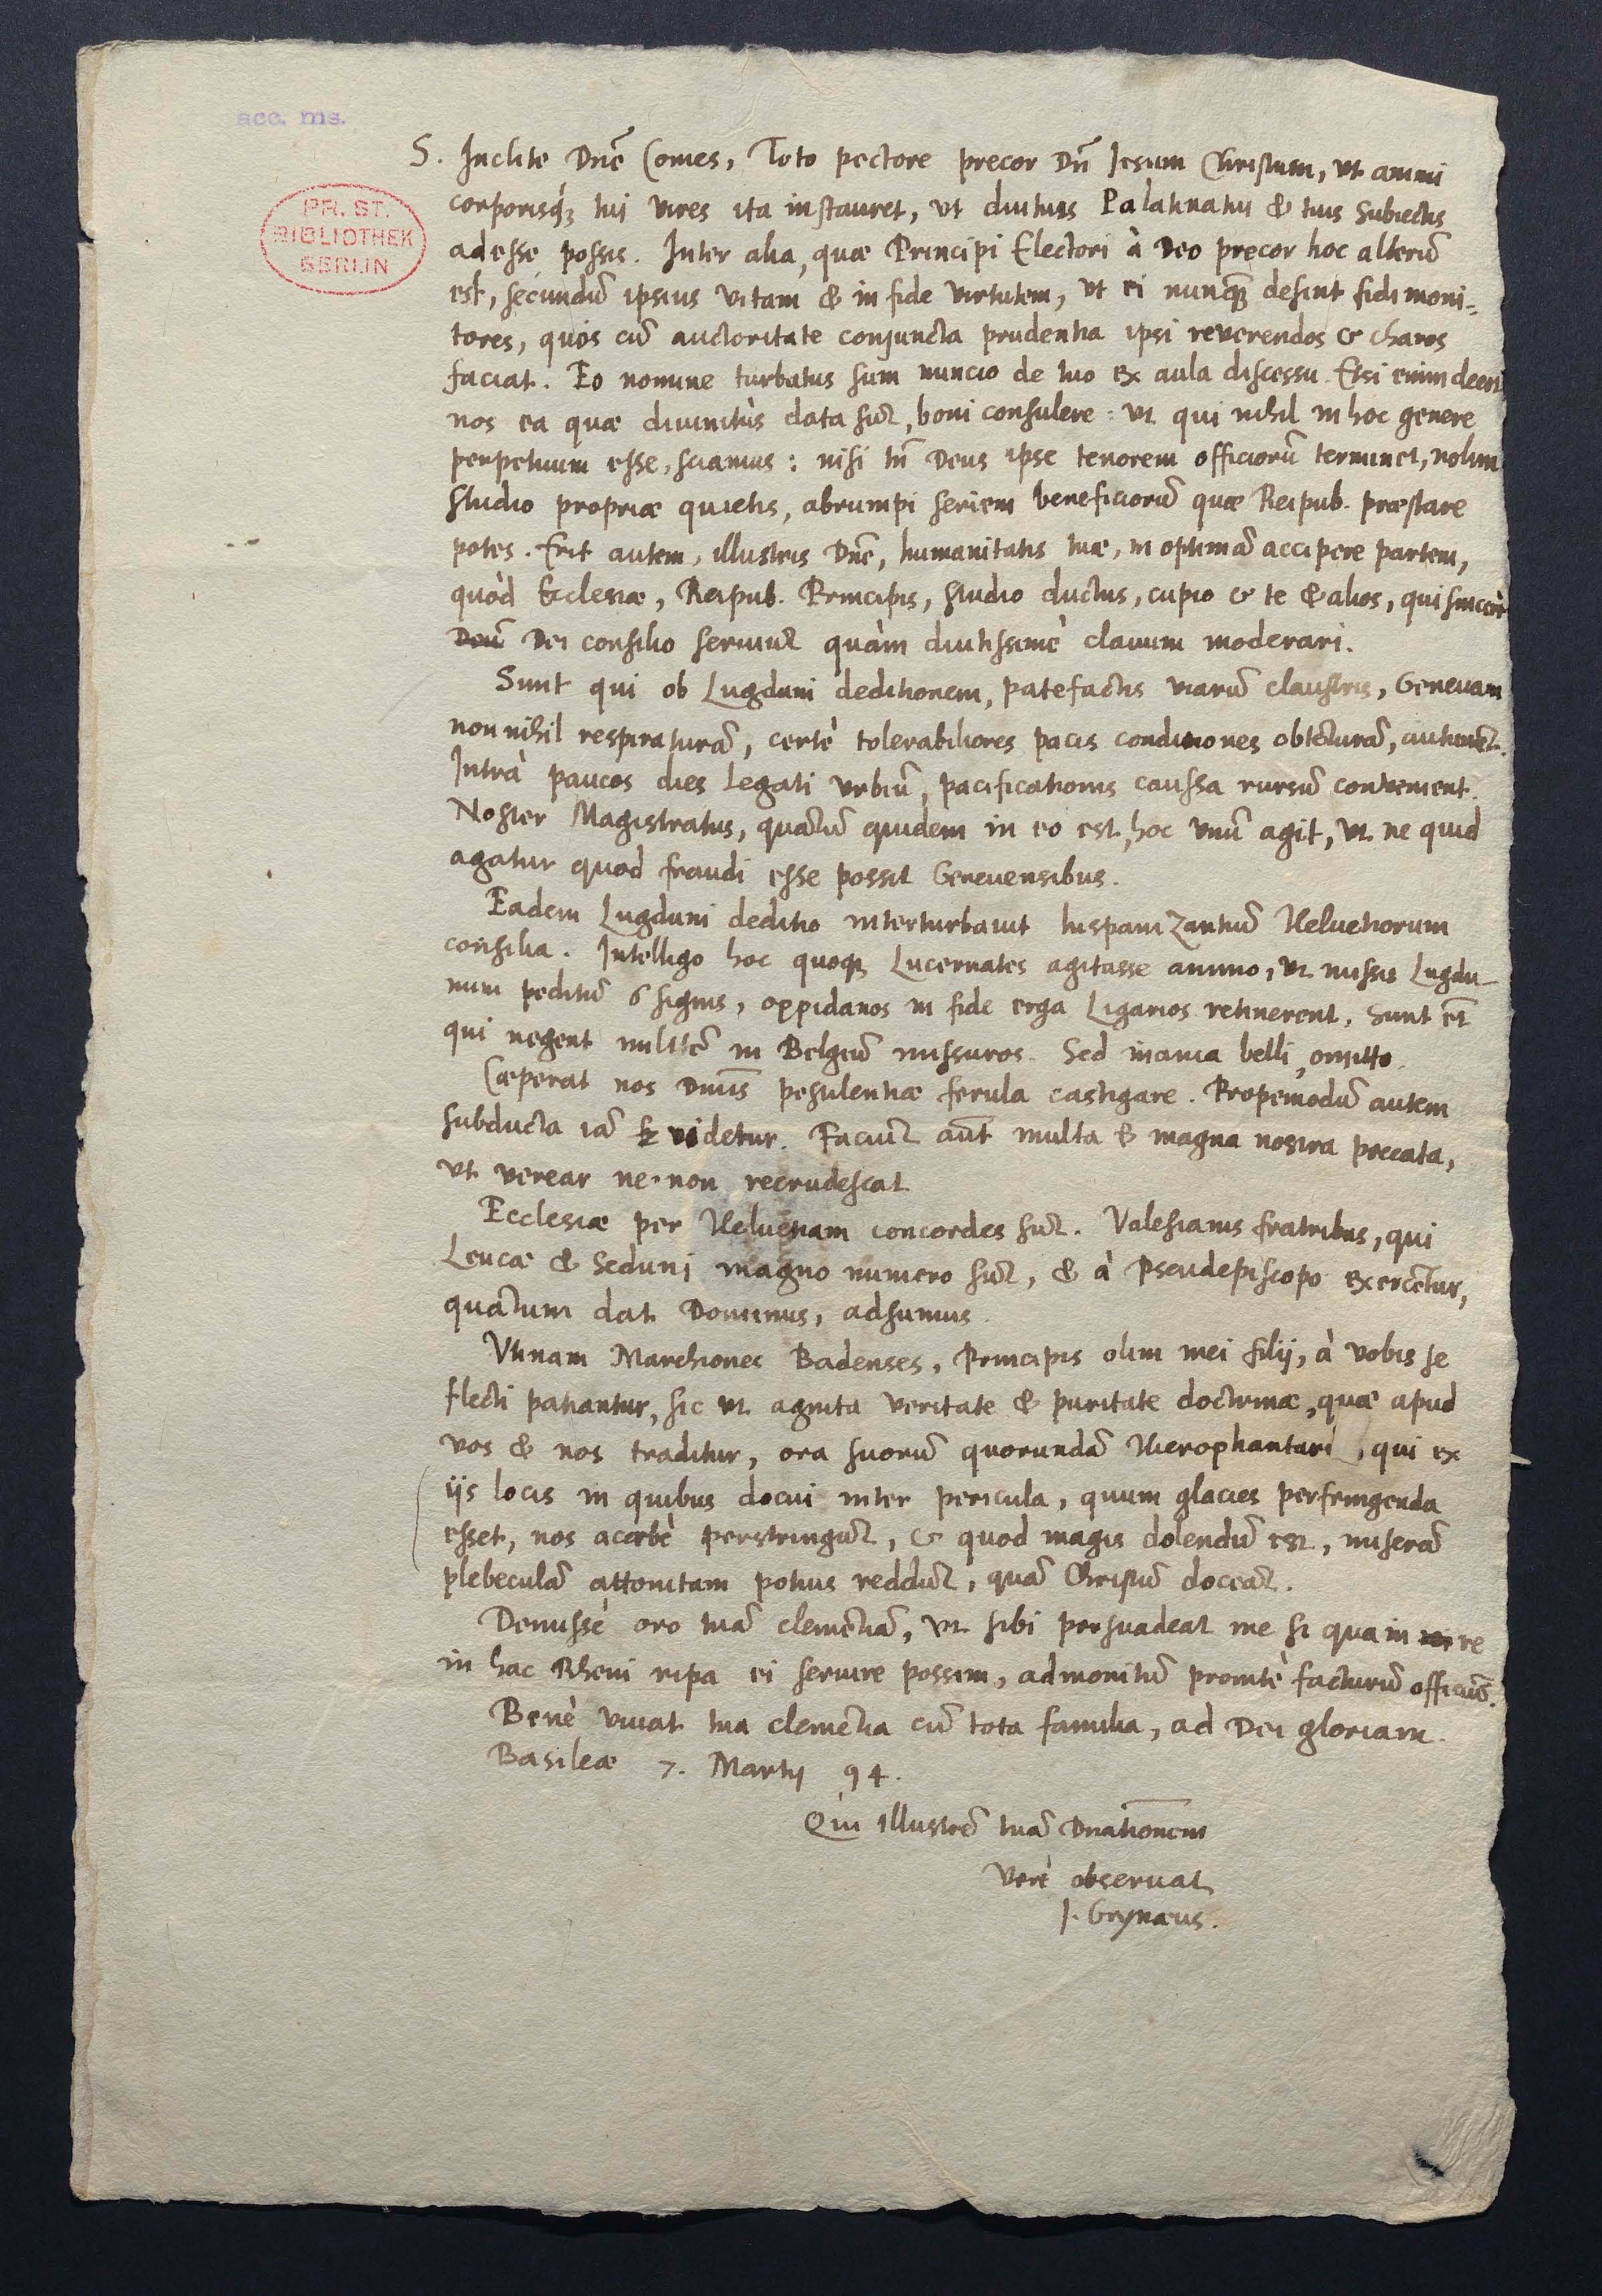 acc. ms.
PR. ST.
BIBLIOTHEK
BERLIN
S. Inclite Dnē Comes, Toto pectore precor Dn̄ Iesum Christum, vt animi
corporisq́ꝫ tui vires ita instauret, vt diutius Palatinatui & tuis subiectis
adesse possis. Inter alia, quæ Principi Electori à Deo precor hoc alterū
est, secundū ipsius vitam & in fide virtutem, vt ei nunq̄ꝫ desint fidi moni-
tores, quos cū auctoritate conjuncta prudentia ipsi reverendos & charos
faciat. Eo nomine turbatus sum nuncio de tuo ex aula discessu. Etsi enim decet
nos ea quæ diuinitùs data sūt, boni consulere: vt qui nihil in hoc genere
perpetuum esse, sciamus: nisi tn̄ Deus ipse tenorem officiorū terminet, nolim
studio propriæ quietis, abrumpi seriem beneficiorū quæ Reipub. præstare
potes. Erit autem, illustris Dnē, humanitatis tuæ, in optimā accipere partem,
quòd Ecclesiæ, Reipub. Principis, studio ductus, cupio & te & alios, qui sincerè
Deū Dei consilio seruiūt quàm diutissimè clauum moderari.
Sunt qui ob Lugduni deditionem, patefactis viarū claustris, Geneuam
nonnihil respiraturā, certè tolerabiliores pacis conditiones obtēturā, autumēt.
Intrà paucos dies Legati vrbiū, pacificationis caussa rursū convenient.
Noster Magistratus, quātū quidem in eo est, hoc vnū agit, vt ne quid
agatur quod fraudi esse possit Geneuensibus.
Eadem Lugduni deditio interturbauit hispanizantiū Heluetiorum
consilia. Intelligo hoc quoqꝫ Lucernates agitasse animo, vt missis Lugdu-
num peditū 6 signis, oppidanos in fide erga Ligarios retinerent. Sunt et̄
qui negent militē in Belgiū missuros. Sed inania belli, omitto.
Cæperat nos Dnūs pestilentiæ ferula castigare. Propemodū autem
subducta iā videtur. Faciūt aūt multa & magna nostra peccata,
vt verear ne non recrudescat
Ecclesiæ per Heluetiam concordes sūt. Valesianis fratribus, qui
Leucæ & Seduni magno numero sūt, & à Pseudepiscopo exercētur,
quātum dat Dominus, adsumus.
Vtinam Marchiones Badenses, Principis olim mei filij, à vobis se
flecti patiantur, sic vt agnita veritate & puritate doctrinæ, quæ apud
vos & nos traditur, ora suorū quorundā Hierophantarū, qui ex
ijs locis in quibus docui inter pericula, quum glacies perfringenda
esset, nos acerbè perstringūt, & quod magis dolendū est, miserā
plebeculā attonitam potius reddūt, quā Christū doceāt.
Demissè oro tuā clemētiā, vt sibi persuadeat me si qua in re
in hac Rheni ripa ei seruire possim, admonitū promtè facturū officiū.
Benè viuat tua clemētia cū tota familia, ad Dei gloriam.
Basileæ 7. Martij 94.
Qui Illustrē tuā Dnationem
verè obseruat
J. Grynæus.